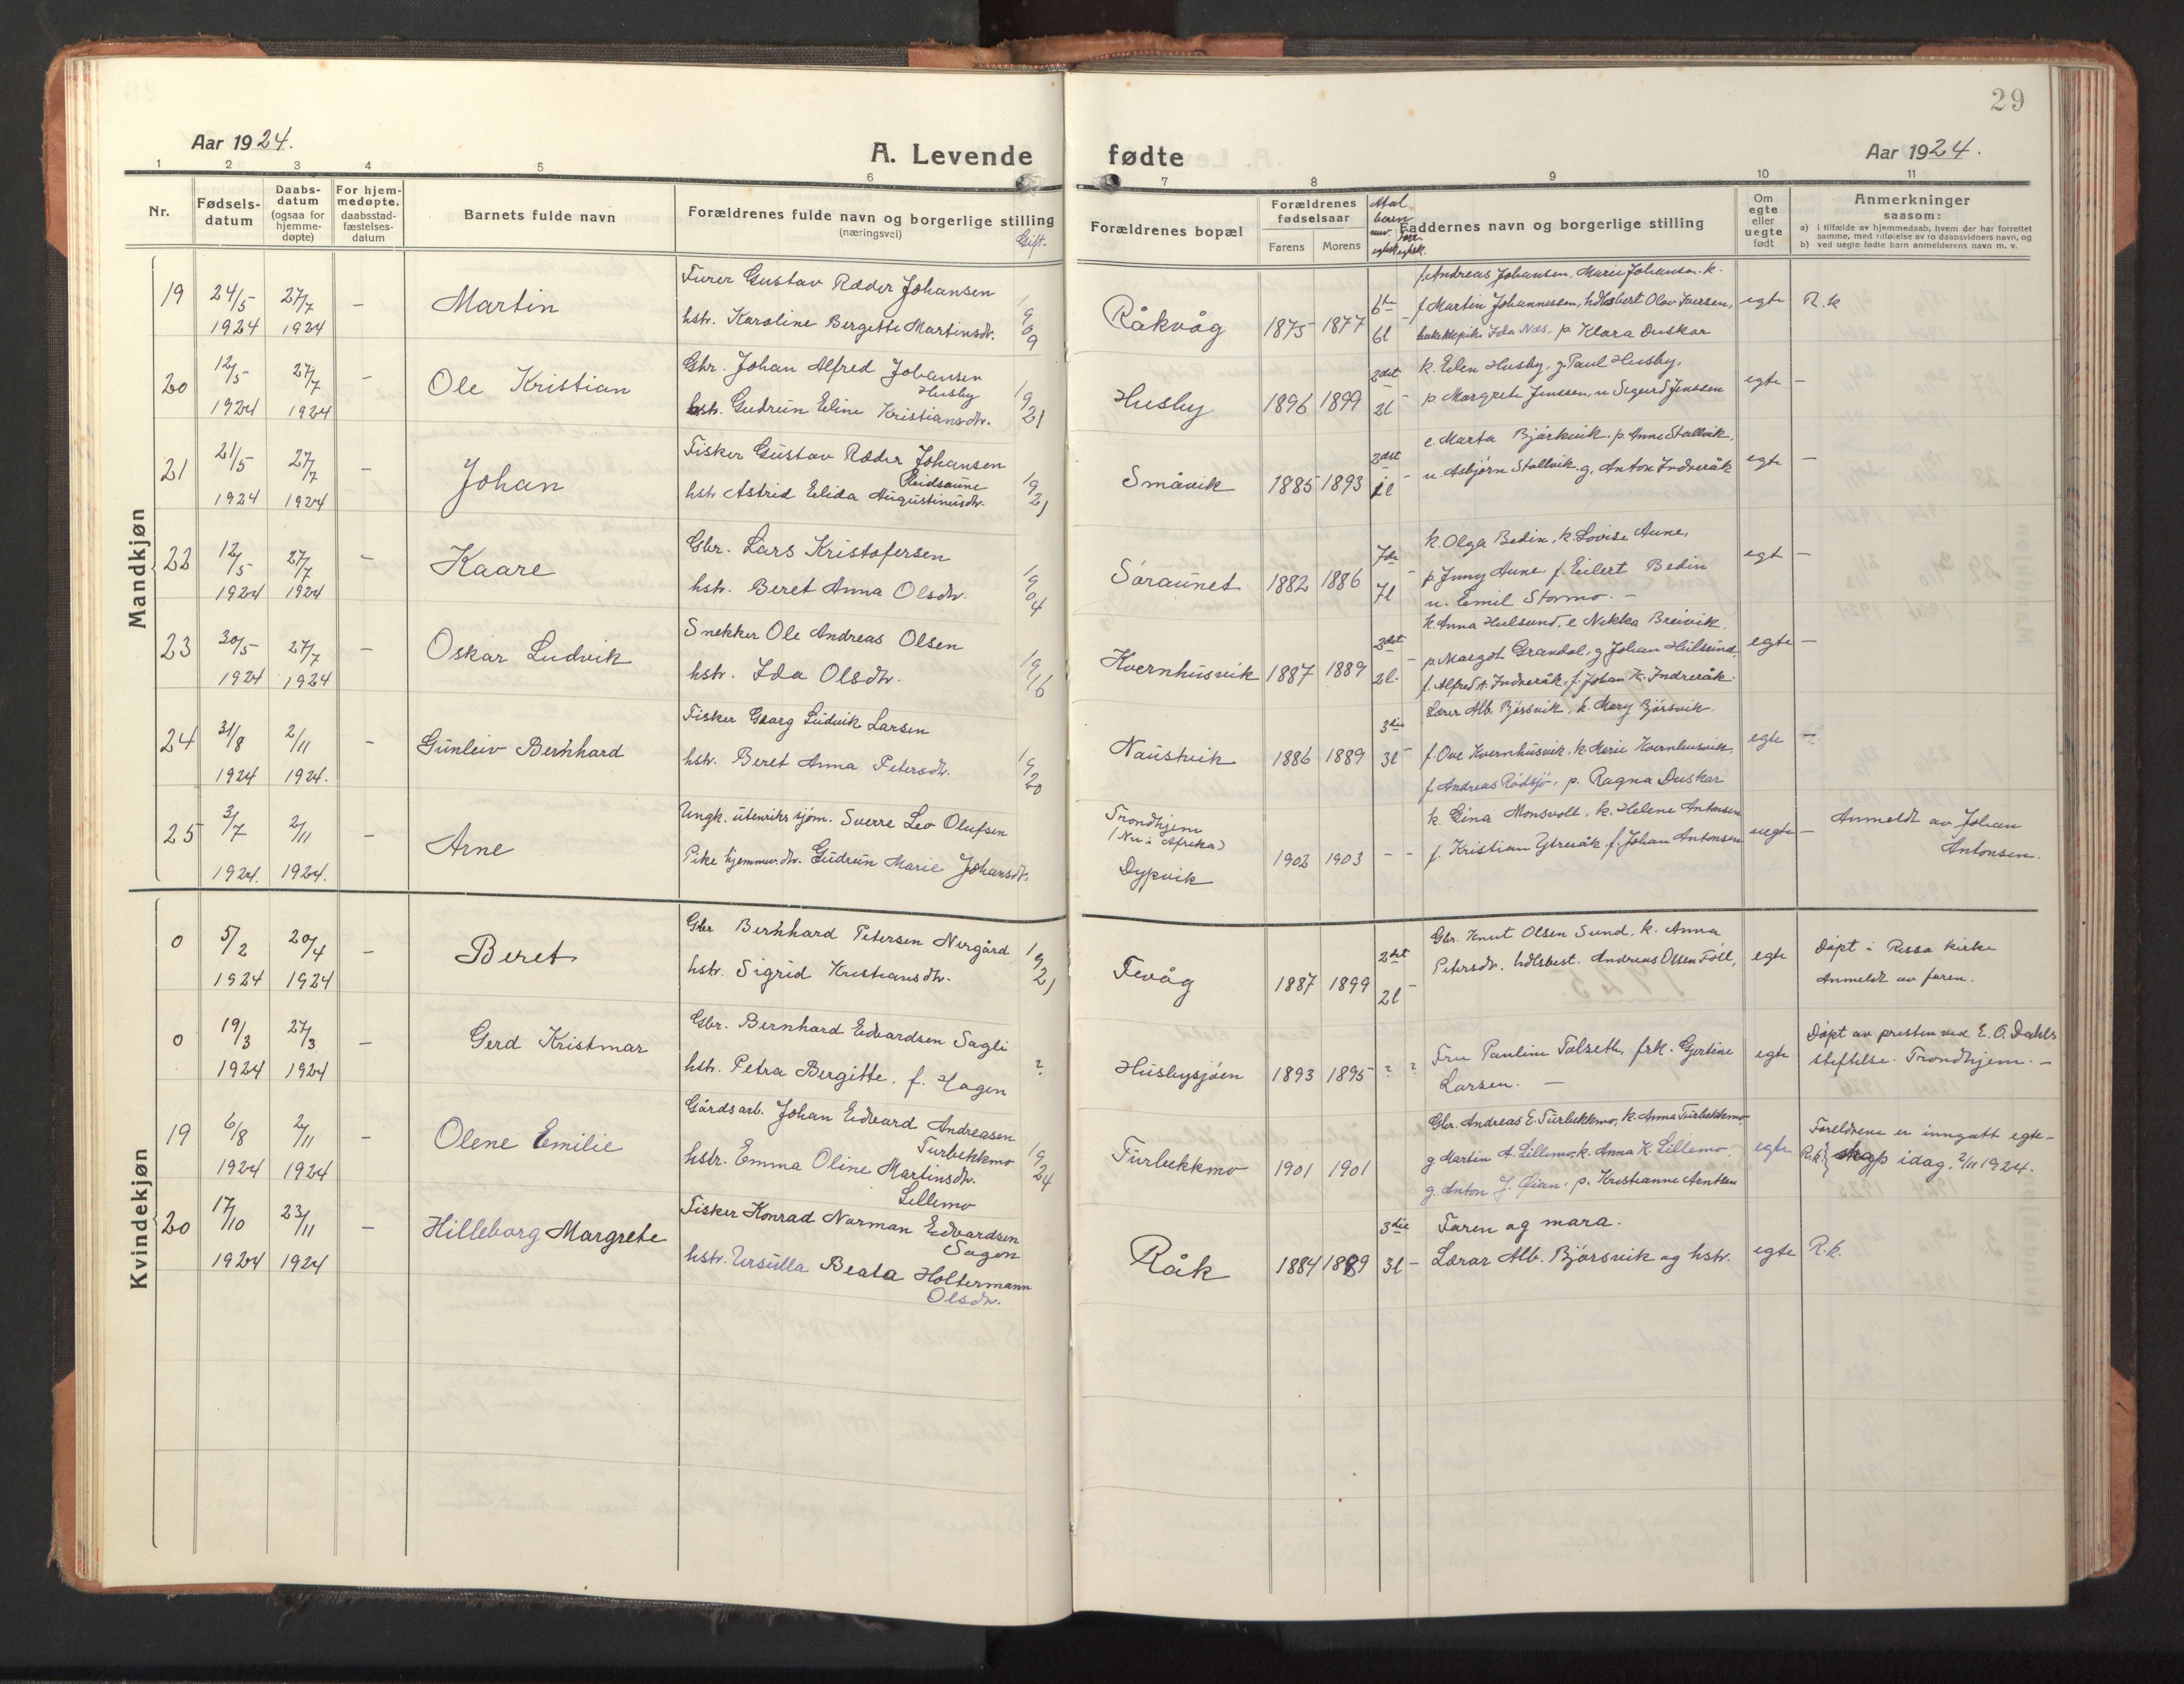 29
Aar 1924.
A. Levende
fødte
Aar 1924.
1 2 3 4 5 6 7 8 9 10 11
Nr.
Fødsels-
datum
Daabs-
datum
(ogsaa for
hjemme-
døpte)
For hjem-
medøpte,
daabsstad-
fæstelses-
datum
Barnets fulde navn
Forældrenes fulde navn og borgerlige stilling
(næringsvei)
Gift.
Forældrenes bopæl
Forældrenes
fødselsaar
Farens Morens
Faddernes navn og borgerlige stilling
Om
egte
eller
uegte
født
Anmerkninger
saasom:
a) i tilfælde av hjemmedaab, hvem der har forrettet
samme, med tilføielse av to daabsvidners navn, og
b) ved uegte fødte barn anmelderens navn m. v.
Mandkjøn
19 24/5 1924 27/7 1924 –
Martin
Furer Gustav Ræder Johansen
hstr. Karoline Bergette Martinsdtr.
1909
Råkvåg
1875 1877
6te 6l
f. Andreas Johansen, Marie Johansen. k.
f. Martin Johannessen, hdlsbest Olav Iversen,
butikkpike Ida Næs, p. Klara Duskar
egte
R.k
20 12/5 1924 27/7 1924 –
Ole Kristian
Gbr. Johan Alfred Johansen
Husby
hstr. Gudrun Eline Kristiansdtr.
1921
Husby
1896 1899
2det 2l –
k. Elen Husby, g. Paul Husby,
p. Margrete Jenssen, u Sigurd Jenssen
egte –
21 21/5 1924 27/7 1924 –
Johan
Fisker Gustav Ræder Johansen
Reidsaune
hstr Astrid Elida Augustinusdtr.
1921
Småvik
1885 1893
2det –
e. Marta Bjørkvik, p. Anne Stallvik,
u. Asbjørn Stallvik. g. Anton Indreråk
egte –
22 12/5 1924 27/7 1924 –
Kaare
Gbr. Lars Kristofersen
hstr. Beret Anna Olsdtr.
1904
Søraunet
1882 1886
7de 7l –
k. Olga Bedin, k. Lovise Aune,
p. Jenny Aune, f. Eilert Bedin
u. Emil Stormo. –
egt –
23 30/5 1924 27/7 1924 –
Oskar Ludvik
Snekker Ole Andreas Olsen
hstr. Ida Olsdtr.
1916
Kvernhusvik
1887 1889
2det 2l. –
k. Anna Hulsund, e Nekka Breivik.
p. Margot Grandal, g Johan Hulsund,
f. Alfred A. Indreråk, f. Johan K. Indreråk
egte –
24 31/8 1924 2/11 1924. –
Gunleiv Bernhard
Fisker Georg Ludvik Larsen
hstr. Beret Anna Petersdtr.
1920
Naustvik
1886 1889
3die 3l –
Lærer Alb. Bjørsvik, k. Mary Bjørsvik.
f. Ove Kvernhusvik, k. Marie Kvernhusvik,
f. Andreas Rødsjø, p. Ragna Duskar
egte –
25 3/7 1924. 2/11 1924. –
Arne
Ungk. utenriks sjøm. Sverre Leo Olufsen
Pike hjemmev. dtr. Gudrun Marie Johansdtr.
Trondhjem
(Nu i Afrika)
Dypvik
1902 1903
– –
k. Gina Monsvoll, k. Helene Antonsen
f. Kristian Ytreråk f. Johan Antonsen
uegte –
Anmeldt av Johan
Antonsen.
Kvindekjøn
0 5/2 1924 20/4 1924 –
Beret
Gbr Bernhard Petersen Nergård
hstr. Sigrid Kristiansdtr.
1921
Fevåg
1887 1899
2det 2l –
Gbr. Knut Olsen Sund, k. Anna
Petersdtr. hdlsbest. Andreas Olsen Føll,
egte
Døpt i Rissa kirke
Anmeldt av faren.
0 19/3 1924 27/3 1924 –
Gerd Kristmar
Gbr. Bernhard Edvardsen Sagli
hstr. Petra Bergitte. f. Hagen
?
Husbysjøen
1893 1895
? ?
Fru Pauline Tølseth, frk. Gjertine
Larsen. –
egte
Døpt av presten ved E. O. Dahls
stiftelse. Trondhjem. –
19 6/8 1924 2/11 1924 –
Olene Emilie
Gårdsarb. Johan Edvard Andreasen
Furbekkmo
hstr. Emma Oline Martinsdtr.
Lillemo
1924
Furbekkmo
1901 1901
Gbr. Andreas E. Furbekkmo, k. Anna Furbekkmo,
g Martin A. Lillemo, k. Anna K. Lillemo,
g. Anton J. Øian, p. Kristianne Arntsen
egte
Foreldrene er inngått egte-
R.k. } skap idag, 2/11 1924.
20 17/10 1924 23/11 1924 –
Hilleborg Margrete
Fisker Konrad Norman Edvardsen
Sagen
hstr. Ursulla Beata Holtermann
Olsdtr.
Råk
1884 1889
3die 3l –
Faren og mora.
Lærar Alb. Bjørsvik og hstr.
egte
R.k.